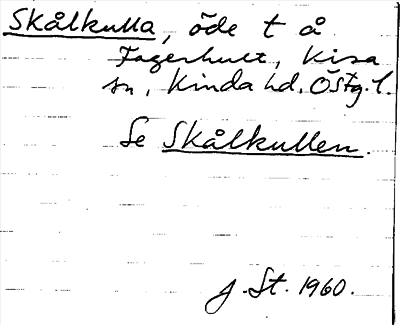 Skålkulla, öde t å
Fagerhult, Kisa
sn, Kinda hd. Östg. l.
Se Skålkullen.
J. St. 1960.